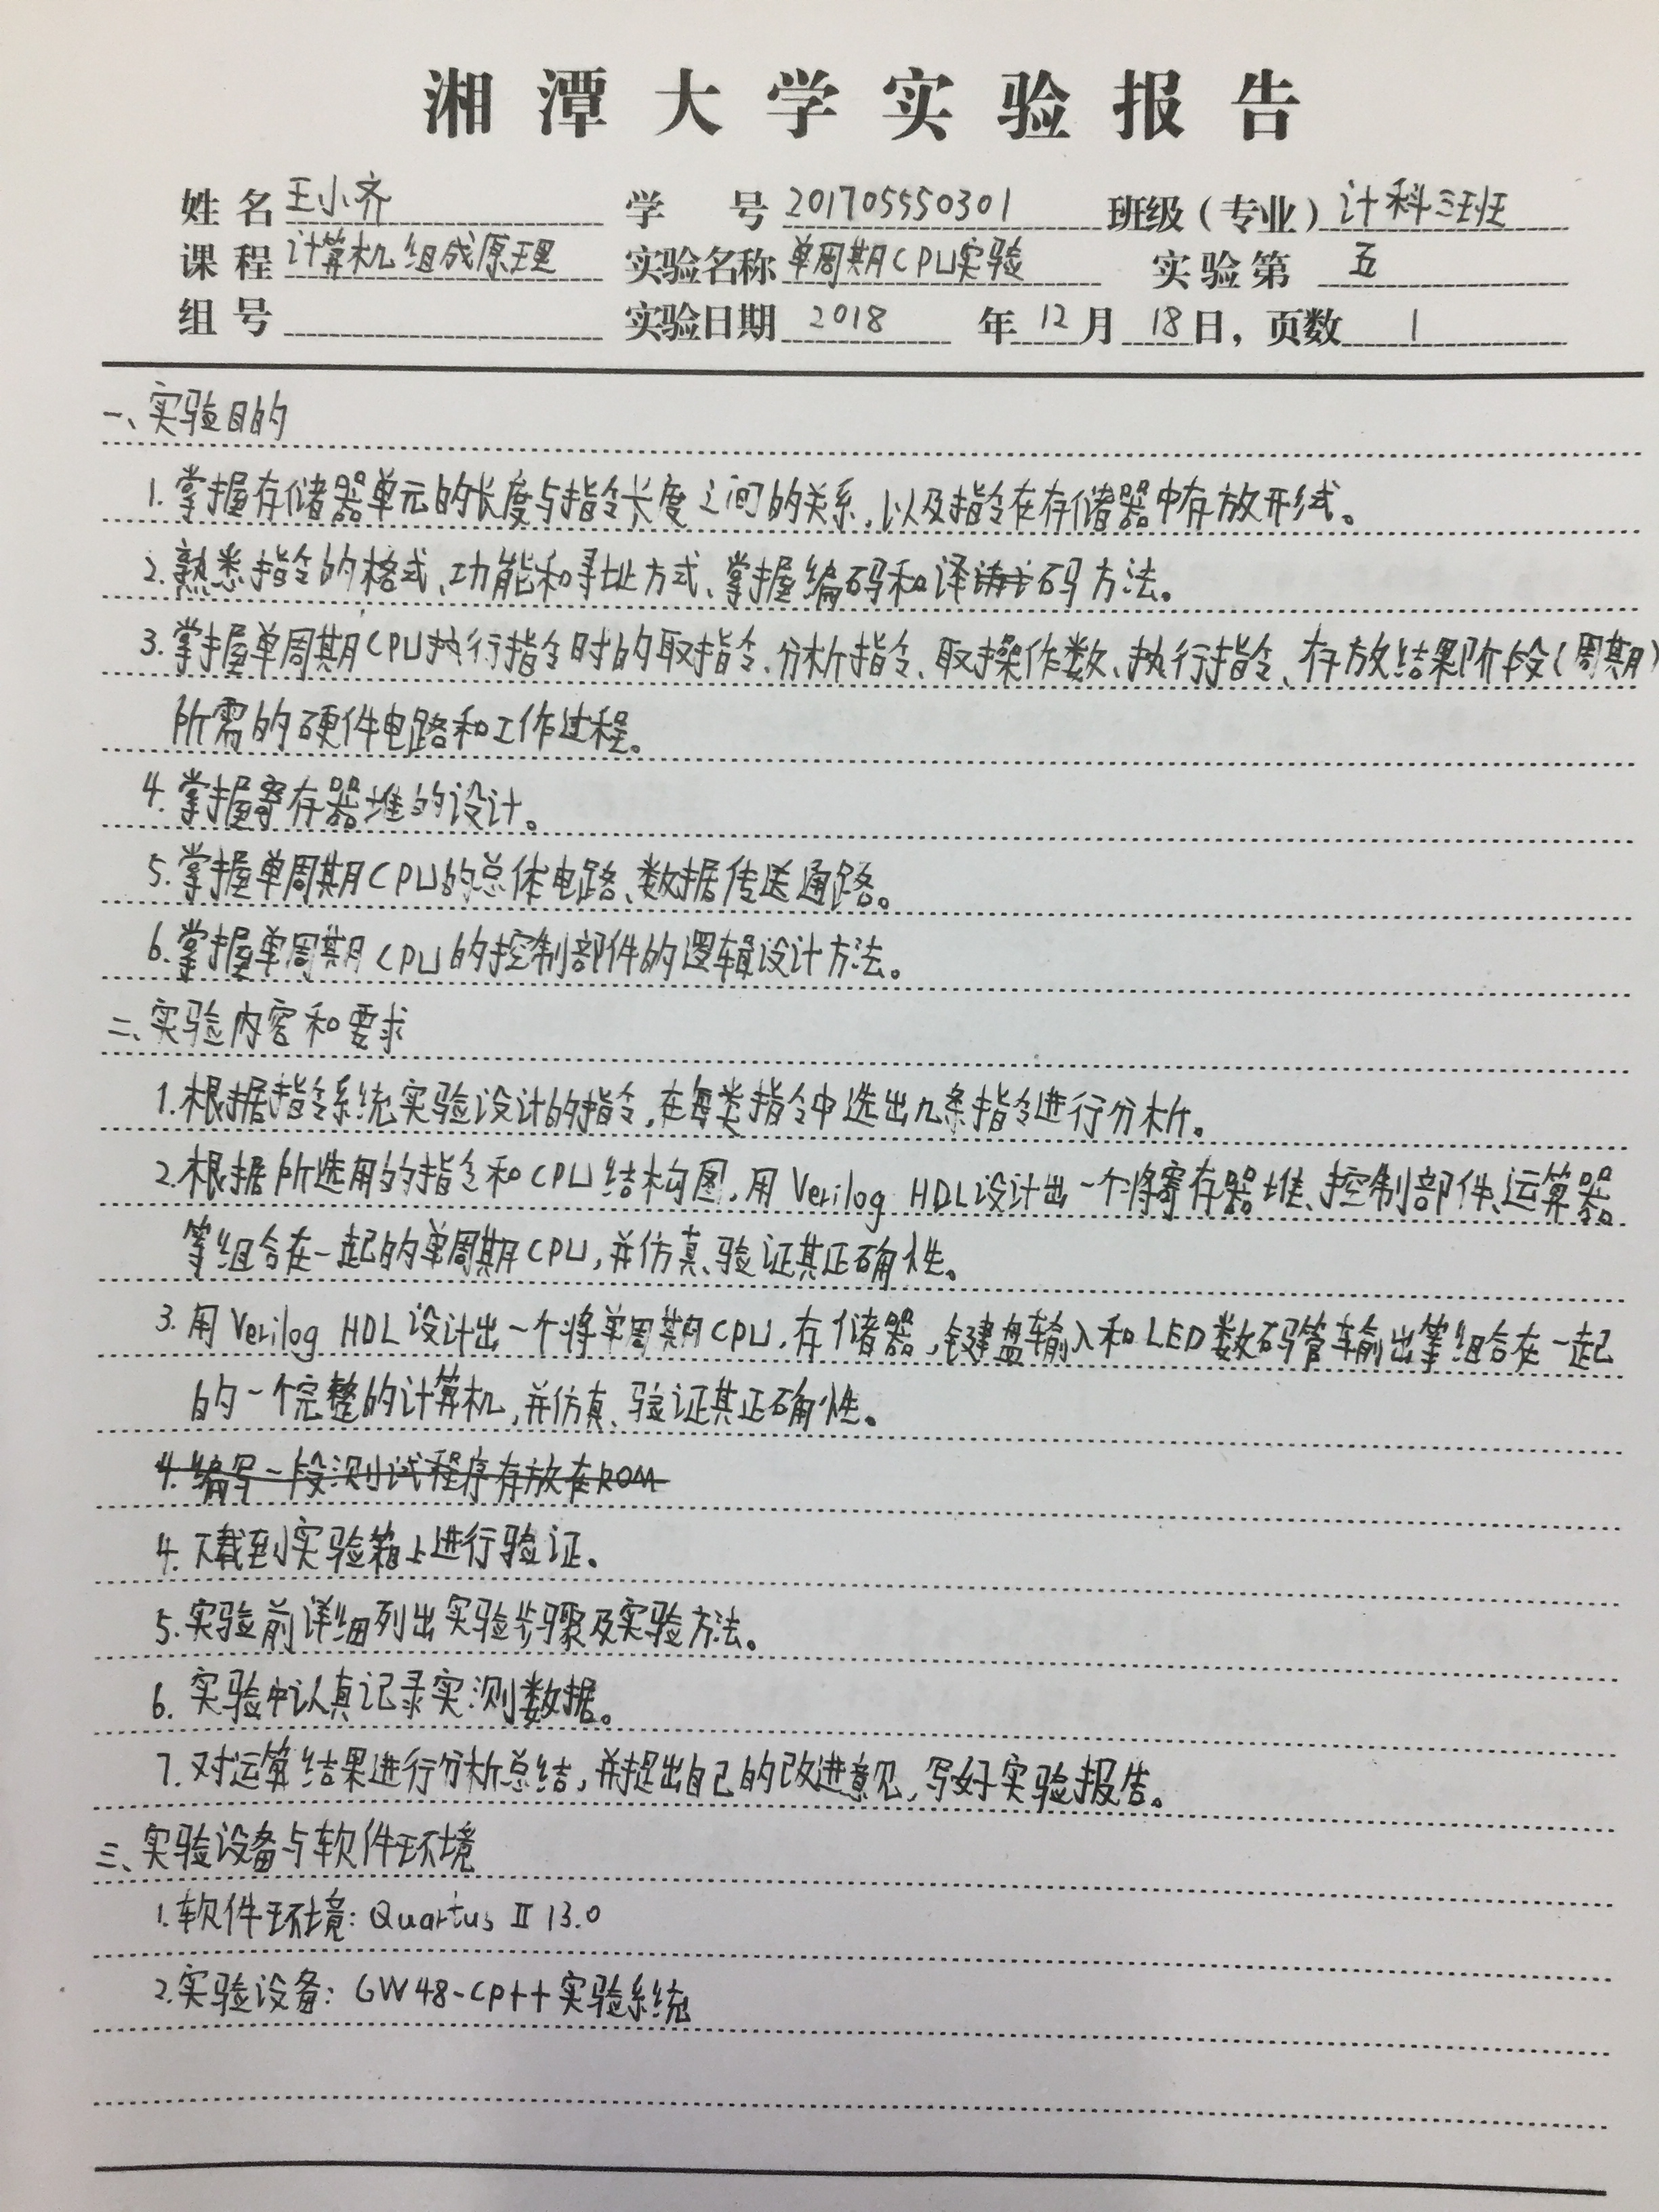 湘潭大学实验报告
姓名 王小齐 学号 201705550301 班级（专业）计科三班
课程 计算机组成原理 实验名称 单周期CPU实验 实验第 五
组号 实验日期 2018 年 12 月 18 日，页数 1
一、实验目的
1. 掌握存储器单元的长度与指令长度之间的关系，以及指令在存储器中存放形式。
2. 熟悉指令的格式、功能和寻址方式、掌握编码和译码方法。
3. 掌握单周期CPU执行指令时的取指令、分析指令、取操作数、执行指令、存放结果阶段(周期)
所需的硬件电路和工作过程。
4. 掌握寄存器堆的设计。
5. 掌握单周期CPU的总体电路、数据传送通路。
6. 掌握单周期CPU的控制部件的逻辑设计方法。
二、实验内容和要求
1. 根据指令系统实验设计的指令，在每类指令中选出几条指令进行分析。
2. 根据所选用的指令和CPU结构图，用Verilog HDL设计出一个将寄存器堆、控制部件、运算器
等组合在一起的单周期CPU，并仿真、验证其正确性。
3. 用Verilog HDL设计出一个将单周期CPU，存储器，键盘输入和LED数码管输出等组合在一起
的一个完整的计算机，并仿真、验证其正确性。
4. 编写一段测试程序存放在ROM
4. 下载到实验箱上进行验证。
5. 实验前详细列出实验步骤及实验方法。
6. 实验中认真记录实测数据。
7. 对运算结果进行分析总结，并提出自己的改进意见，写好实验报告。
三、实验设备与软件环境
1. 软件环境：Quartus II 13.0
2. 实验设备：GW48-CP++实验系统